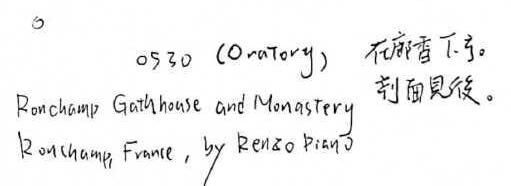 0530 (Oratory)
剖面見後。
Ronchamp Gathhouse and Monastery
Ronchamp, France, by Renzo Piano